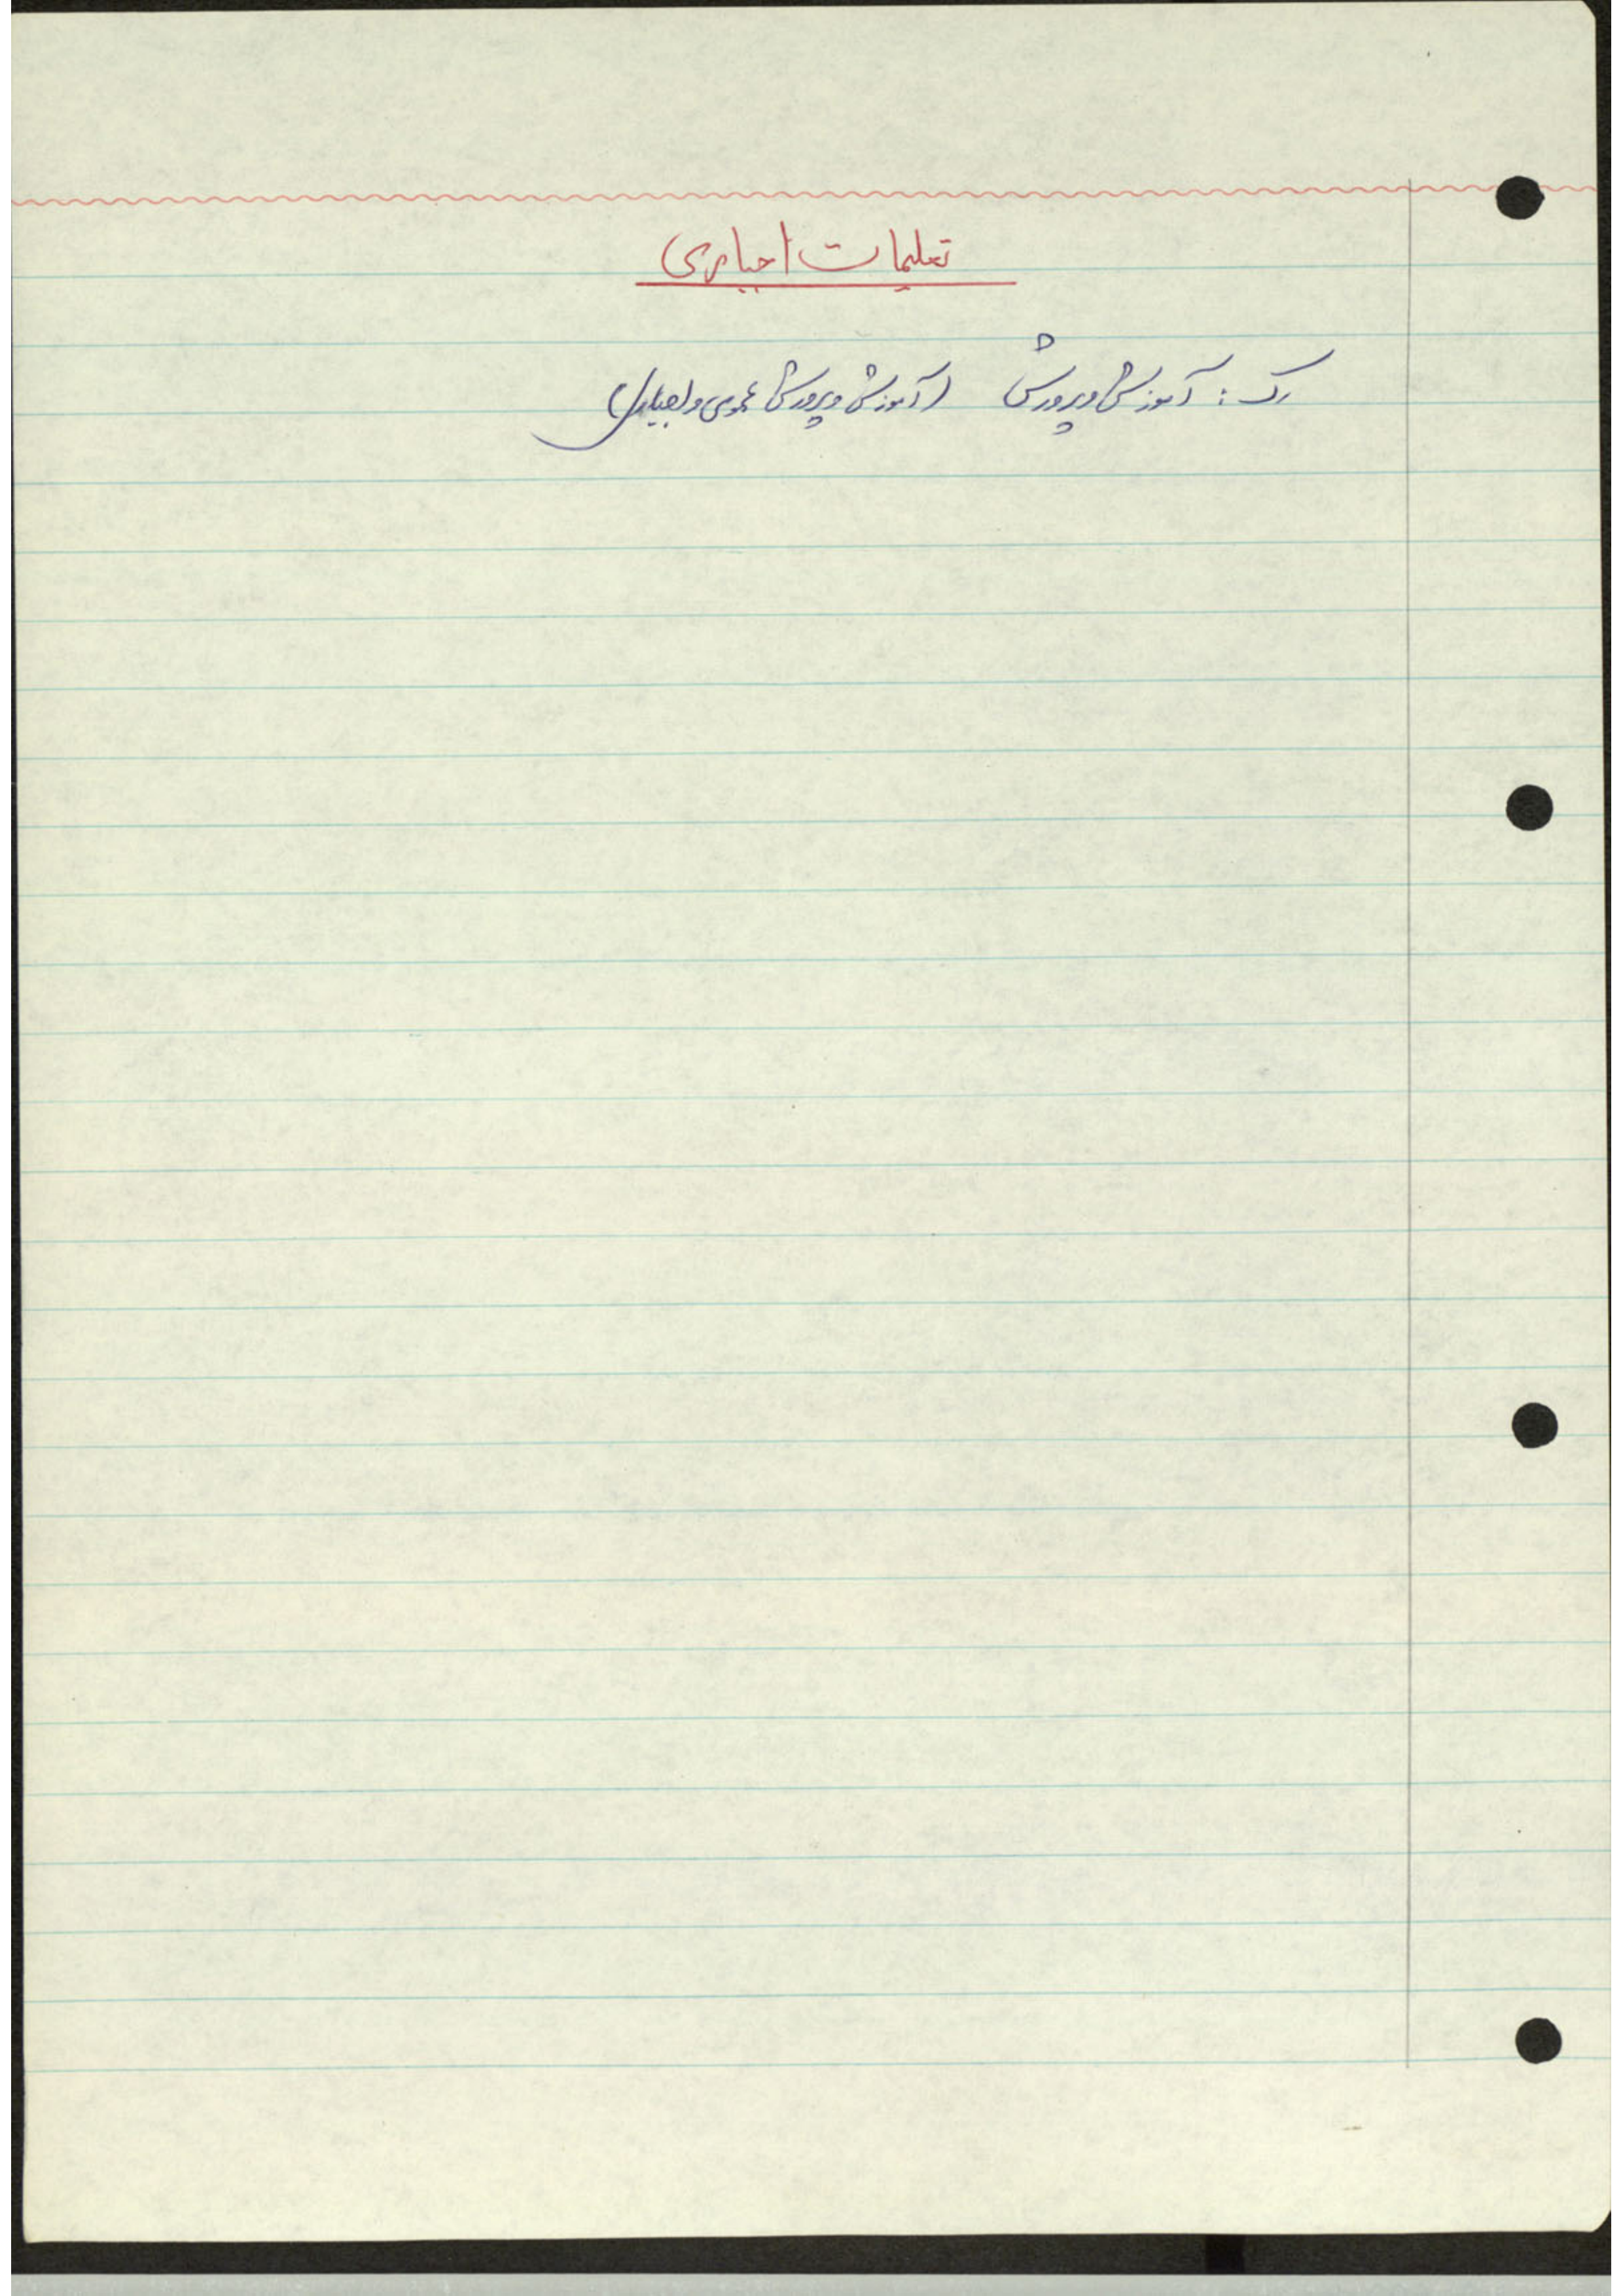 تعلیمات اجباری
رک : آموزش و پرورش (آموزش و پرورش عمومی و اجباری)